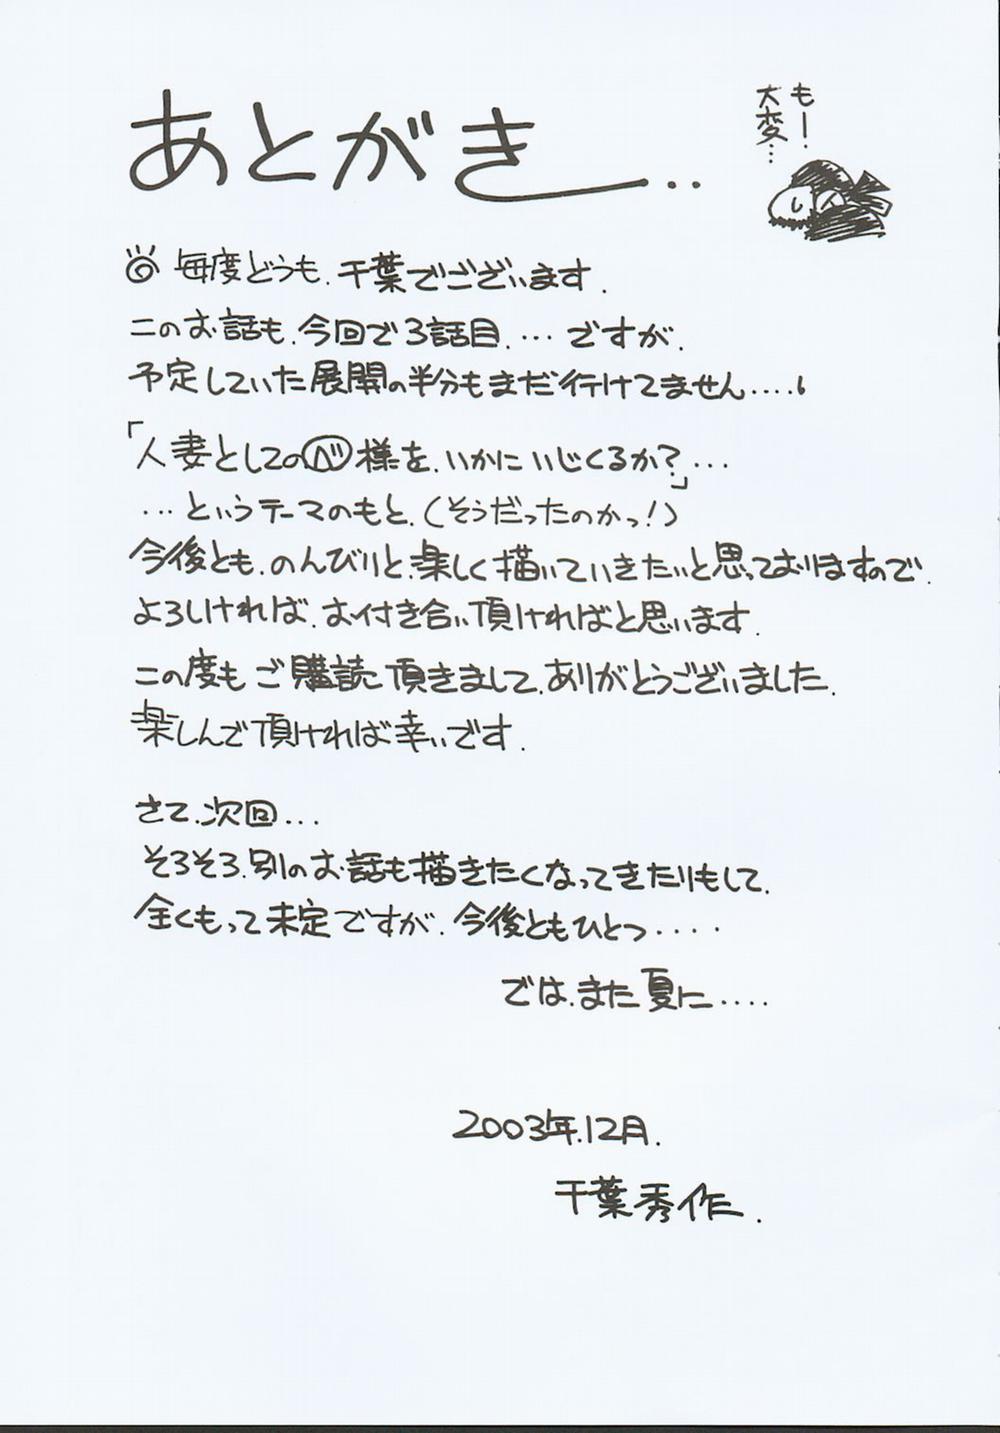 あとがき...
もー
大変...
毎度どうも.千葉でございます.
このお話も.今回で3話目....ですが.
予定していた展開の半分もまだ行けてません....
「人妻としてのベ様を.いかにいじくるか?...」
...というテーマのもと.(そうだったのかっ!)
今後とも.のんびりと.楽しく描いていきたいと思っておりますので.
よろしければ.お付き合い頂ければと思います.
この度もご購読頂きまして.ありがとうございました.
楽しんで頂ければ幸いです.
さて.次回...
そろそろ.別のお話も描きたくなってきたりもして.
全くもって未定ですが.今後ともひとつ....
では.また夏に....
2003年.12月.
千葉秀作.